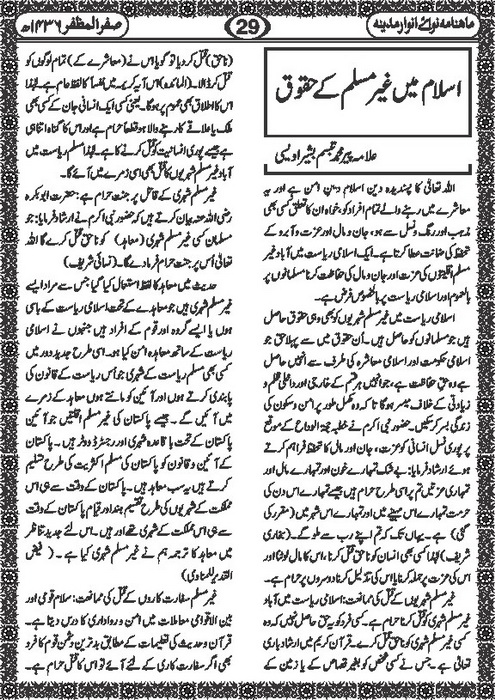 ماہنامہ نوائے انوار مدینہ
29
صفر المظفر ۱۴۳۶ھ
اسلام میں غیر مسلم کے حقوق
علامہ پیر محمد تبسم بشیر اویسی
اللہ تعالیٰ کا پسندیدہ دین اسلام دین امن ہے اور یہ
معاشرے میں رہنے والے تمام افراد کو، خواہ ان کا تعلق کسی بھی
مذہب اور رنگ و نسل سے ہو، جان و مال اور عزت و آبرو کے
تحفظ کی ضمانت عطا کرتا ہے۔ ایک اسلامی ریاست میں آباد غیر
مسلم اقلیتوں کی عزت اور جان و مال کی حفاظت کرنا مسلمانوں پر
بالعموم اور اسلامی ریاست پر بالخصوص فرض ہے۔
اسلامی ریاست میں غیر مسلم شہریوں کو بھی وہی حقوق حاصل
ہیں جو مسلمانوں کو حاصل ہیں۔ اُن حقوق میں سے پہلا حق جو
اسلامی حکومت اور اسلامی معاشرہ کی طرف سے انہیں حاصل
ہے وہ حق حفاظت ہے، جو انہیں ہر قسم کے خارجی اور داخلی ظلم و
زیادتی کے خلاف میسر ہوگا تاکہ وہ مکمل طور پر امن و سکون کی
زندگی بسر کرسکیں۔ حضور نبی اکرم نے خطبہ حجۃ الوداع کے موقع
پر پوری نسل انسانی کو عزت، جان اور مال کا تحفظ فراہم کرتے
ہوئے ارشاد فرمایا: بے شک تمہارے خون اور تمہارے مال اور
تمہاری عزتیں تم پر اسی طرح حرام ہیں جیسے تمہارے اس دن کی
حرمت تمہارے اس مہینے میں اور تمہارے اس شہر میں (مقرر کی
گئی) ہے۔ یہاں تک کہ تم اپنے رب سے ملو گے۔ (بخاری
شریف) لہٰذا کسی بھی انسان کو ناحق قتل کرنا، اس کا مال لوٹنا اور
اس کی عزت پر حملہ کرنا یا اس کی تذلیل کرنا دوسروں پر حرام ہے۔
غیر مسلم شہریوں کے قتل کی ممانعت: اسلامی ریاست میں آباد
کسی غیر مسلم شہری کو ناحق قتل کرے۔ قرآن کریم میں ارشاد باری
تعالیٰ ہے، جس نے کسی شخص کو بغیر قصاص کے یا زمین کے
(ناحق) قتل کردیا تو گویا اس نے (معاشرے کے) تمام لوگوں کو
قتل کر ڈالا۔ (المائدہ) اس آیہ کریمہ میں نفسا کا لفظ عام ہے لہٰذا
اس کا اطلاق بھی عموم پر ہوگا۔ یعنی کسی ایک انسانی جان کے کسی بھی
ملک یا علاقے کا رہنے والا ہو قطعاً حرام ہے اور اس کا گناہ اتنا ہی
ہے جیسے پوری انسانیت کو قتل کرنے کا ہے۔ لہٰذا مسلم ریاست میں
آباد غیر مسلم شہریوں کا قتل بھی اسی زمرے میں آئے گا۔
غیر مسلم شہری کے قاتل پر جنت حرام ہے: حضرت ابوبکرہ
رضی اللہ عنہ بیان کرتے ہیں کہ حضور نبی اکرم نے ارشاد فرمایا: جو
مسلمان کسی غیر مسلم شہری (معاہد) کو ناحق قتل کرے گا اللہ
تعالیٰ اُس پر جنت حرام فرما دے گا۔ (نسائی شریف)
حدیث میں معاہد کا لفظ استعمال کیا گیا جس سے مراد ایسے
غیر مسلم شہری ہیں جو معاہدے کے تحت اسلامی ریاست کے باسی
ہوں یا ایسے گروہ اور قوم کے افراد ہیں جنہوں نے اسلامی
ریاست کے ساتھ معاہدہ امن کیا ہو۔ اسی طرح جدید دور میں
کسی بھی مسلم ریاست کے شہری جو اُس ریاست کے قانون کی
پابندی کرتے ہوں اور آئین کو مانتے ہوں معاہد کے زمرے
میں آئیں گے۔ جیسے پاکستان کی غیر مسلم اقلیتیں جو آئین
پاکستان کے تحت باقاعدہ شہری اور رجسٹرڈ ووٹر ہیں۔ پاکستان
کے آئین و قانون کو پاکستان کی مسلم اکثریت کی طرح تسلیم
کرتے ہیں یہ سب معاہد ہیں۔ پاکستان کے وقت سے ہی اس
مملکت کے شہریوں کی طرح تقسیم ہند اور قیام پاکستان کے وقت
سے ہی اس مملکت کے شہری تھے اور ہیں۔ اس لئے جدید تناظر
میں معاہد کا ترجمہ ہم نے غیر مسلم شہری کیا ہے۔ (فیض
القدیر للمناوی)
غیر مسلم سفارت کاروں کے قتل کی ممانعت: سلام قومی اور
بین الاقوامی معاملات میں امن و رواداری کا درس دیتا ہے۔
قرآن و حدیث کی تعلیمات کے مطابق بدترین دشمن قوم کا فرد
بھی اگر سفارت کاری کے لئے آئے تو اس کا قتل حرام ہے۔